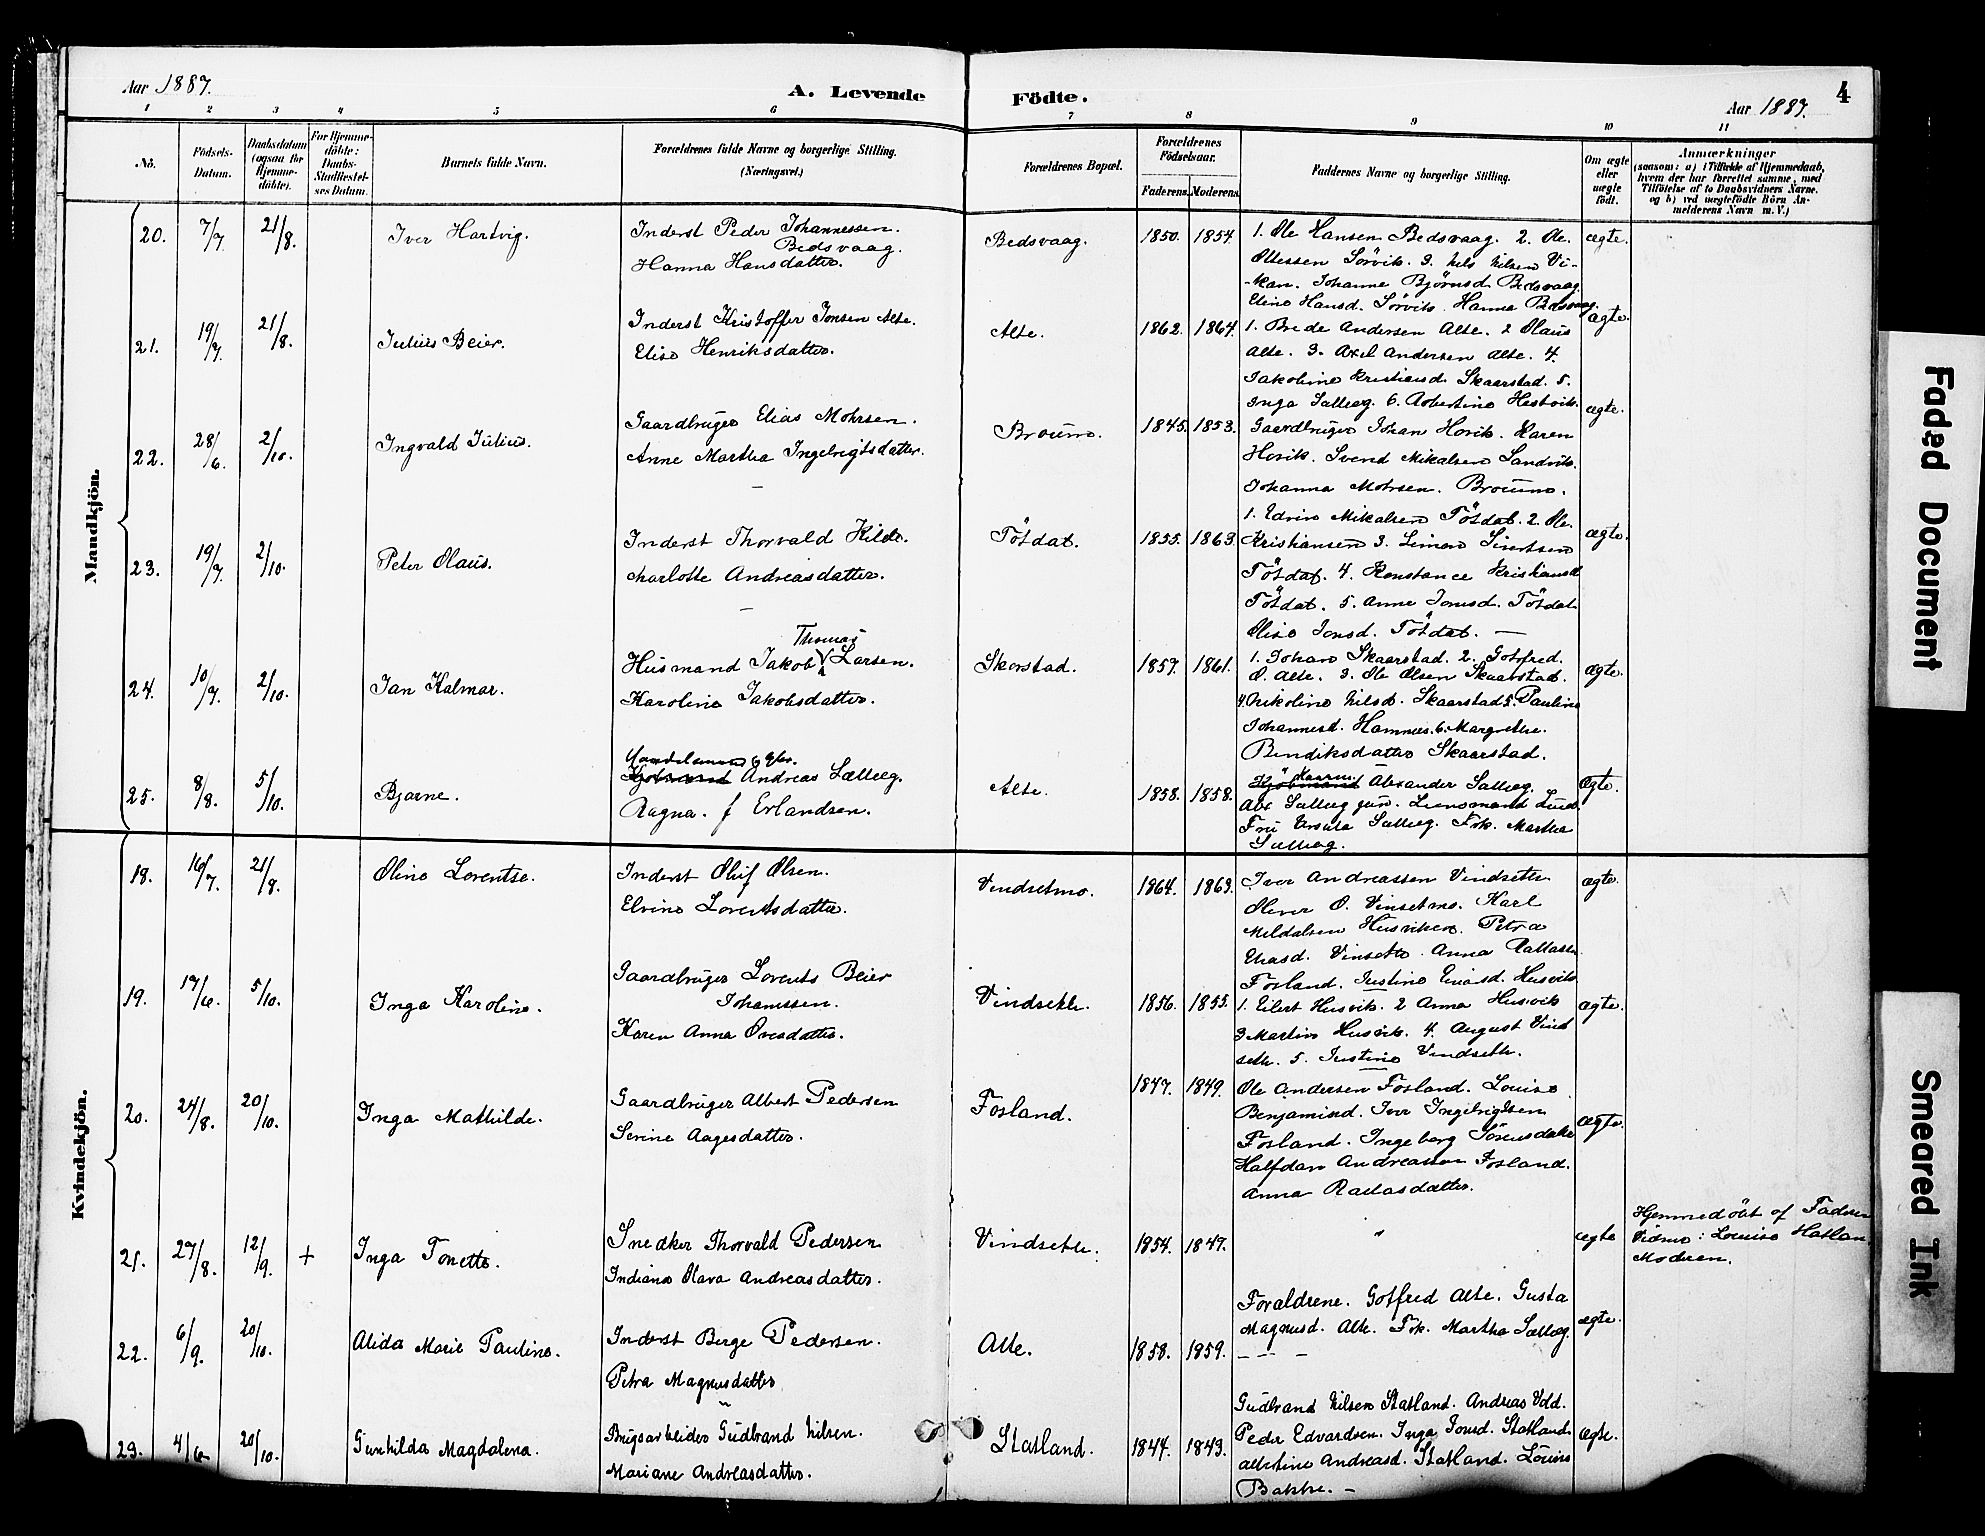 Aar 1887.
A. Levende
Födte.
Aar 1887.
4
1 2 3 4 5 6 7 8 9 10 11
No.
Födsels-
Datum.
Daabsdatum
(ogsaa for
Hjemme-
döbte).
For Hjemme-
döbte:
Daabs-
Stadfæstel-
ses Datum.
Barnets fulde Navn.
Forældrenes fulde Navne og borgerlige Stilling.
(Næringsvei.)
Forældrenes Bopæl.
Forældrenes
Födselsaar.
Faderens. Moderens.
Faddernes Navne og borgerlige Stilling.
Om ægte
eller
uægte
födt.
Anmærkninger
(saasom: a) i Tilfælde af Hjemmedaab,
hvem der har forrettet samme, med
Tilföielse af to Daabsvidners Navne.
og b) ved uægtefödte Börn An-
melderens Navn m. V.)
Mandkjön.
20. 7/7 21/8. Iver Hartvig.
Inderst Peder Johannessen.
Bedsvaag.
Hanna Hansdatter.
Bedsvaag. 1850. 1854.
1. Ole Hansen Bedsvaag. 2. Ole.
Ottessen Sörvik. 3. Nils Nilsen Vi-
-kan. Johanne Björnsd. Bedsvaag.
Eline Hansd. Sörvik. Hanna Bedsvaag.
ægte.
21. 19/7 21/8. Julius Beier.
Inderst Kristoffer Jonsen Alte.
Elise Henriksdatter.
Alte. 1862. 1864.
1. Brede Andersen Alte. 2 Olaus
Alte. 3. Axel Andersen Alte. 4.
Jakobine Kristiansd. Skaarstad. 5.
Inga Sælleg. 6. Albertine Hestvik.
ægte.
22. 28/6. 2/10. Ingvald Julius.
Gaardbruger Elias Mohrsen.
Anne Martha Ingebrigtsdatter.
Brouno. 1845. 1853.
Gaardbruger Johan Hovik. Karen
Hovik. Svend Mikalsen Sandvik.
Johanna Mohrsen. Brouno.
ægte.
23. 19/7 2/10. Peter Olaus.
Inderst Thorvald Kilde.
Charlotte Andreasdatter.
Tötdal. 1855. 1863.
1. Edvin Mikalsen Tötdal. 2. Ole.
Kristiansen 3. Simon Sivertsen
Tötdal. 4. Konstance Kristiansd.
Tötdal. 5. Anne Jonsd. Tötdal
Elise Jonsd. Tötdal. —
ægte.
24. 10/7. 2/10. Jan Kalmar.
Thomas
Husmand Jakob Larsen.
Karoline Jakobsdatter.
Skorstad. 1857. 1861.
1. Johan Skaarstad. 2. Gotfred.
O. Alte. 3. Ole Olsen Skaarstad.
4. Nikoline Nilsd. Skaarstad 5. Pauline
Johannesd. Hamnes. 6. Margrethe.
Bendiksdatter Skaarstad.
ægte.
25. 8/8. 5/10. Bjarne.
Handelsmand
Kjöbmand Andreas Sælleg.
Ragna. f Erlandsen.
Alte. 1858. 1858.
Kjöbmand Alexander Sælleg.
Alx Sælleg jun. Lensmand Lund
Fru Ursula Sælleg. Frk. Martha
Sælleg.
ægte.
Kvindekjön.
18. 16/7. 21/8. Oline Lorentse.
Inderst Oluf Olsen.
Elvine Lorentsdatter.
Vindsetmo. 1864. 1863.
Iver Andreassen Vindseth
Oliver O. Vinsetmo. Karl
Meldalsen Husviken. Petra
Eliasd. Vinseth. Anna Rallasd.
Fosland. Justine Eliasd. Husvik
ægte.
19. 17/6. 5/10. Inga Karoline.
Gaardbruger Lorents Beier
Johanssen.
Karen Anna Ovesdatter.
Vindseth. 1856. 1855.
1. Eilert Husvik. 2 Anna Husvik
3 Martin Husvik. 4. August Vind
seth. 5. Justine Vindseth.
ægte.
20. 24/8. 20/10. Inga Mathilde.
Gaardbruger Albert Pedersen
Serine Aagesdatter.
Fosland. 1847. 1849.
Ole Andersen Fosland. Louise
Benjaminsd. Iver Ingebrigtsen
Fosland. Ingeborg Sörensdatter
Halfdan Andreassen Fosland.
Anna Rallasdatter.
ægte.
21. 27/8. 12/9. + Inga Tonette.
Snedker Thorvald Pedersen
Indiana Olava Andreasdatter.
Vindseth. 1854. 1847.
"
ægte
Hjemmedöbt af Faderen
Vidne: Louise Hatlan
Moderen.
22. 6/9. 20/10. Alida Marie Pauline.
Inderst Berge Pedersen.
Petra Magnusdatter
Alte. 1858. 1859.
Forældrene. Gotfred Alte. Gusta
Magnusd. Alte. Frk. Martha Sælleg.
— — —
ægte.
23. 4/6 20/10. Gunhilda Magdalena.
Brugsarbeider Gudbrand Nilsen.
Mariane Andreasdatter.
Statland. 1844. 1843.
Gudbrand Nilsen Statland. Andreas Vold.
Peder Edvardsen. Inga Jonsd. Statland
Albertine Andreasd. Statland. Louise
Bakke. —
ægte.
Faded Document
Smeared Ink